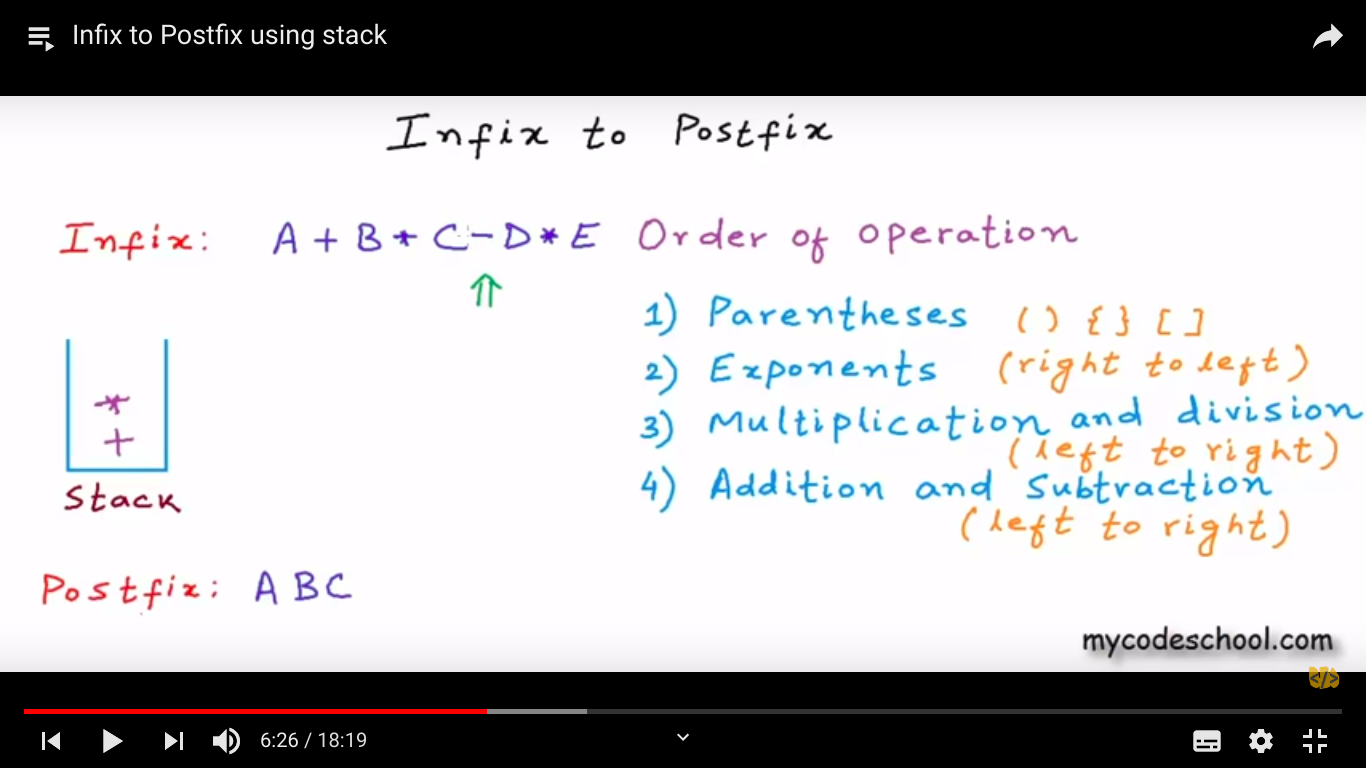 Infix to Postfix using stack
Infix to Postfix
Infix: A + B * C - D * E
Order of operation
1) Parentheses ( ) { } [ ]
2) Exponents (right to left)
3) Multiplication and division
(left to right)
4) Addition and Subtraction
(left to right)
*
+
Stack
Postfix: A B C
mycodeschool.com
</>
6:26 / 18:19